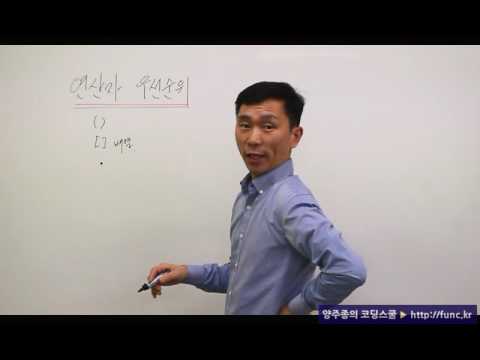 연산자 우선순위
()
[] 배열
.
양주종의 코딩스쿨 ▶ http://func.kr